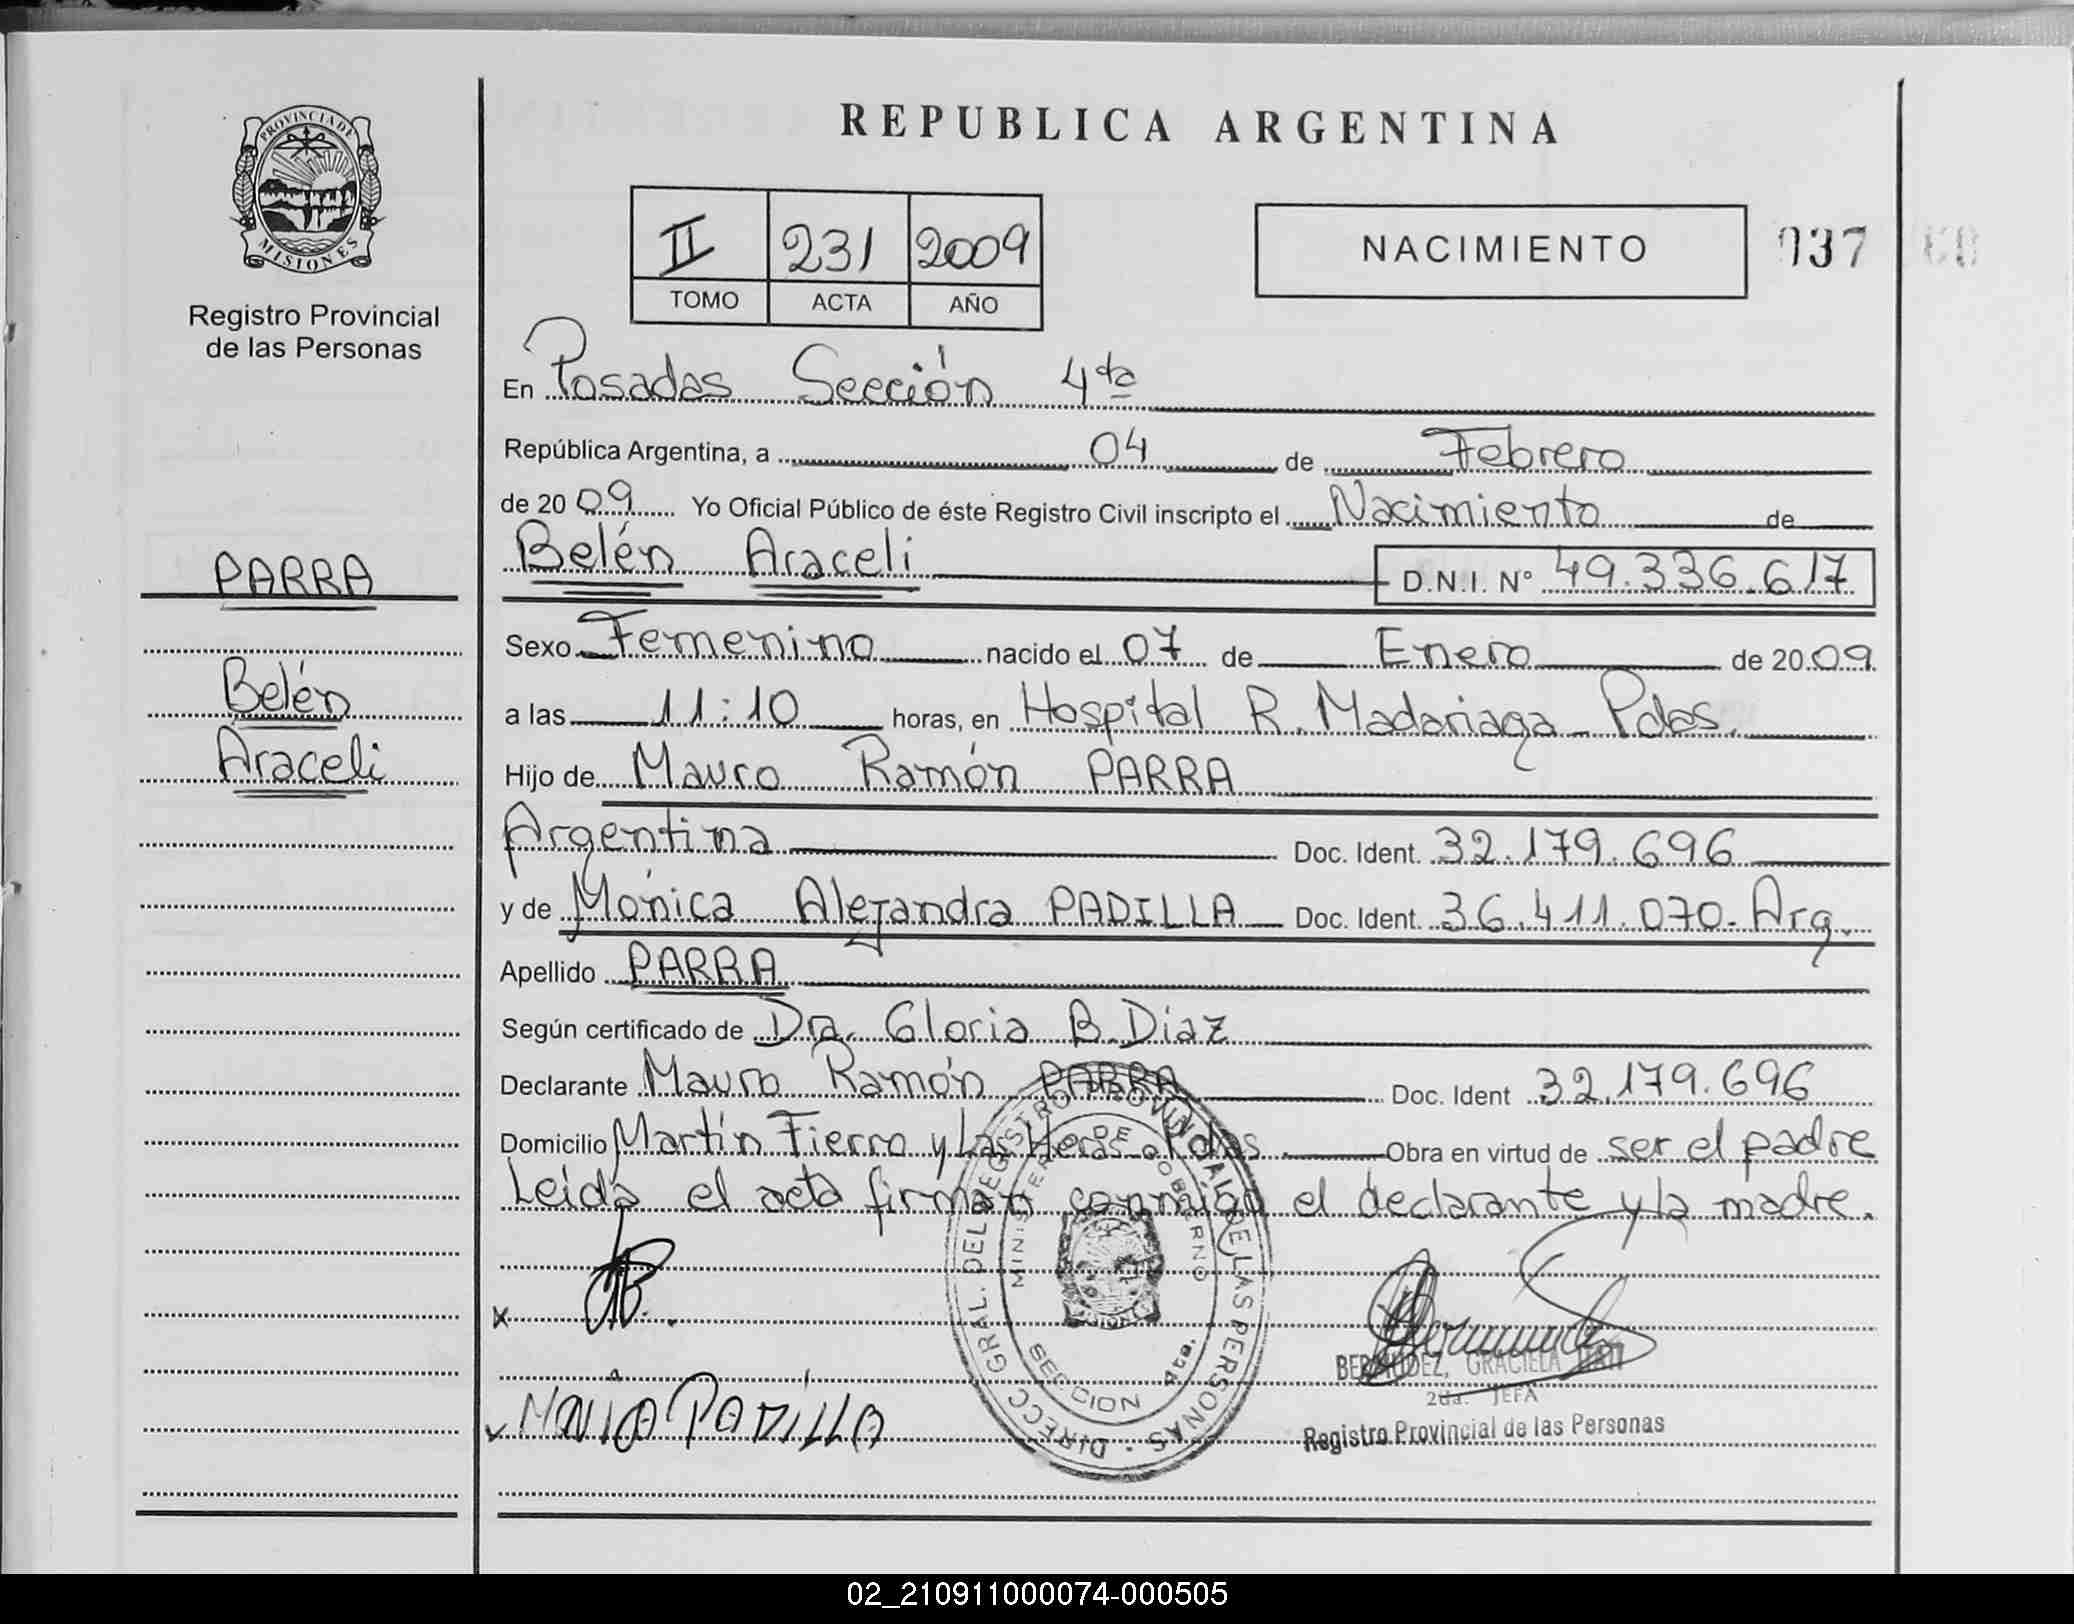 REPUBLICA ARGENTINA
PROVINCIA DE MISIONES
Registro Provincial
de las Personas
II 231 2009
TOMO ACTA AÑO
NACIMIENTO
937
En Posadas Sección 4ta
República Argentina, a 04 de Febrero
de 2009 Yo Oficial Público de éste Registro Civil inscripto el Nacimiento de
PARRA
Belén Araceli D.N.I. N° 49.336.617
Sexo Femenino nacido el 07 de Enero de 2009
Belén
a las 11:10 horas, en Hospital R. Madariaga - Pdas.
Araceli
Hijo de Mauro Ramón PARRA
Argentina Doc. Ident. 32.179.696
y de Mónica Alejandra PADILLA Doc. Ident. 36.411.070- Arg.
Apellido PARRA
Según certificado de Dra. Gloria B. Diaz
Declarante Mauro Ramón PARRA Doc. Ident 32.179.696
Domicilio Martín Fierro y Las Heras - Pdas Obra en virtud de ser el padre
Leída el acta firman conmigo el declarante y la madre.
DIRECC GRAL. DEL REGISTRO PROVINCIAL DE LAS PERSONAS
MINISTERIO DE GOBIERNO
SECCION 4ta.
BERMUDEZ, GRACIELA
2da. JEFA
Registro Provincial de las Personas
PADILLA
02_210911000074-000505